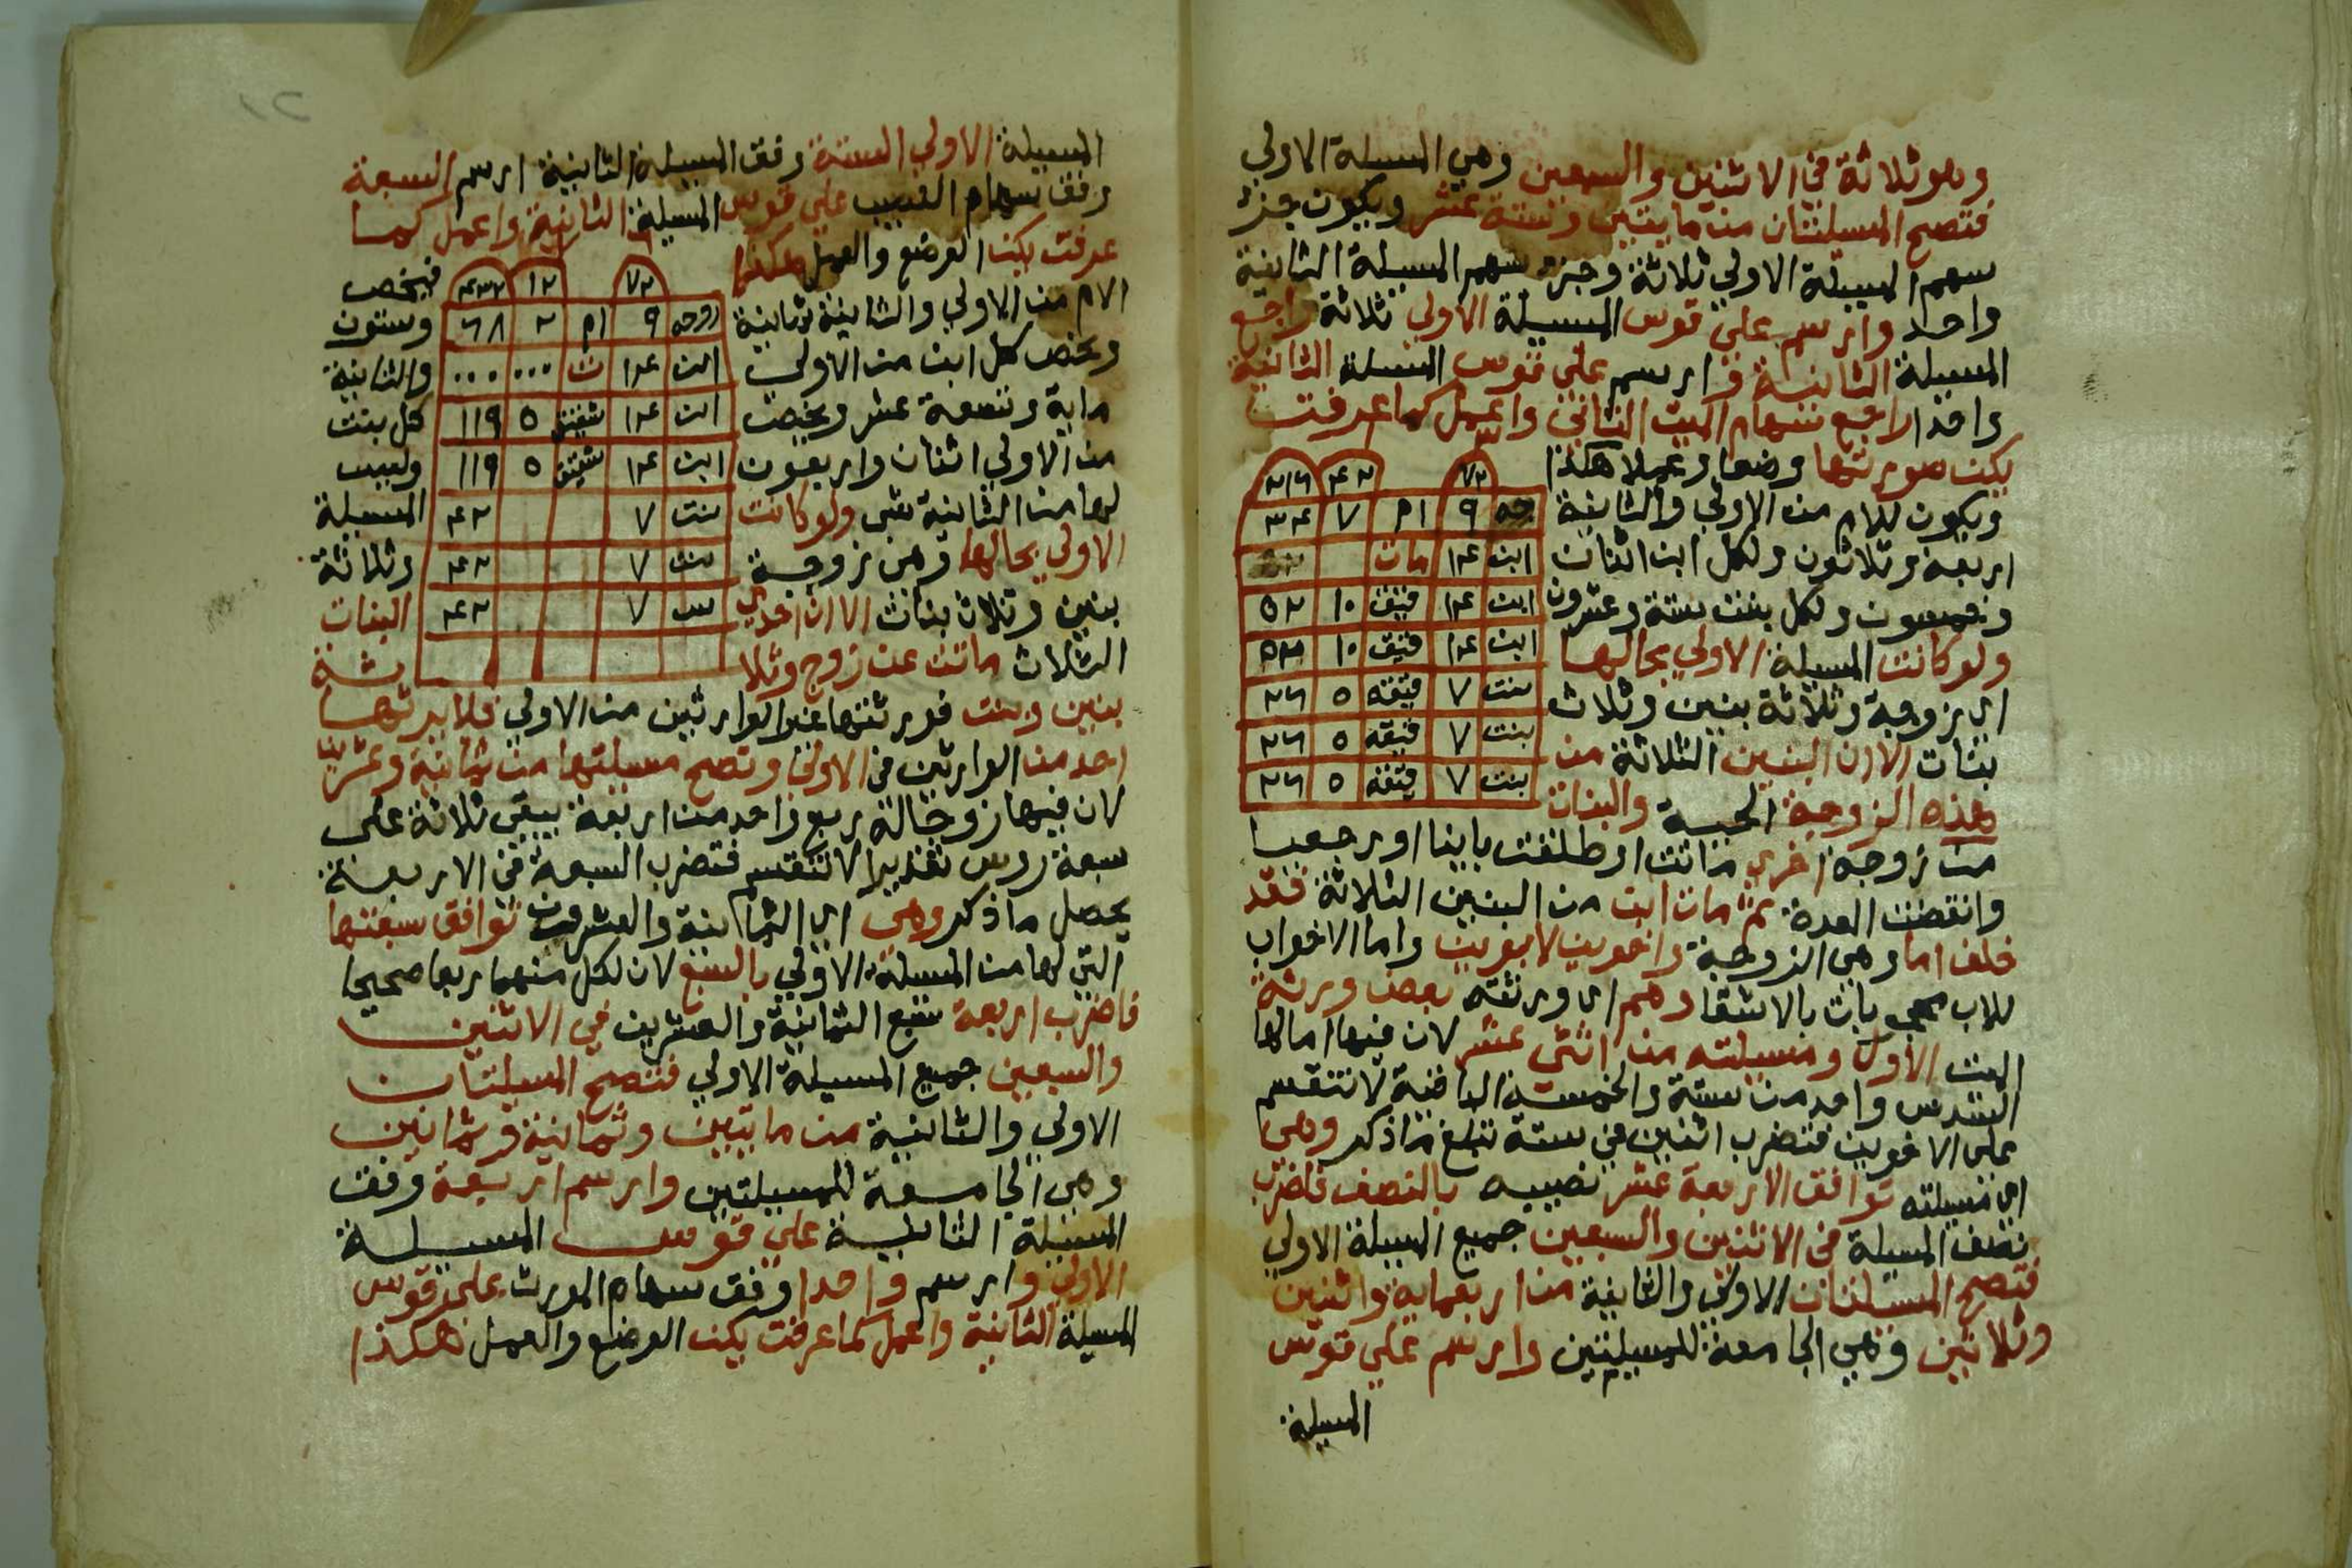 وهو ثلاثة في الاثنين والسبعين وهي المسيلة الاولي
فتصح المسيلتان من مايتين وستة عشر ويكون جزء
سهم المسيلة الاولي ثلاثة وجزء سهم المسيلة الثانية
واحد وارسم علي قوس المسيلة الاولي ثلاثة راجع
المسيلة الثانية وارسم علي قوس المسيلة الثانية
واحدا راجع سهام الميت الثاني واعمل كما عرفت
يكن صورتها وضعا وعملا هكذا
ويكون للام من الاولي والثانية
اربعة وثلاثون ولكل ابن اثنان
وخمسون ولكل بنت ستة وعشرون
ولو كانت المسيلة الاولي بحالها
اي زوجة وثلاثة بنين وثلاث
بنات الا ان البنين الثلاثة من
هذه الزوجة الحية والبنات
٧٢ ٤٢ ٢١٦
جه ٩ ام ٧ ٣٤
ابن ١٤ مات
ابن ١٤ قيق ١٠ ٥٢
ابن ١٤ قيق ١٠ ٥٢
بنت ٧ قيقه ٥ ٢٦
بنت ٧ قيقه ٥ ٢٦
بنت ٧ قيقه ٥ ٢٦
من زوجة اخري ماتت او طلقت باينا او رجعيا
وانقضت العدة ثم مات ابن من البنين الثلاثة فقد
خلف اما وهي الزوجة واخوين لابوين واما الاخوات
للاب محجوبات بالاشقا وهم اي ورثته بعض ورثة
الميت الاول ومسيلته من اثني عشر لان فيها اما لها
السدس واحد من ستة والخمسة الباقية لا تنقسم
على الاخوين فتضرب اثنين في ستة تبلغ ما ذكر وهي
اي مسيلته توافق الاربعة عشر نصيبه بالنصف فاضرب
نصف المسيلة في الاثنين والسبعين جميع المسيلة الاولي
فتصح المسيلتان الاولي والثانية من اربعماية واثنين
وثلاثين وهي الجامعة للمسيلتين وارسم علي قوس
المسيلة
المسيلة الاولي الستة وفق المسيلة الثانية ارسم السبعة
وفق سهام النصيب علي قوس المسيلة الثانية واعمل كما
عرفت يكن الوضع والعمل هكذا فيخص
الام من الاولي والثانية ثمانية وستون
ويخص كل ابن من الاولي والثانية
ماية وتسعة عشر ويخص كل بنت
من الاولي اثنان واربعون وليس
لها من الثانية شي ولو كانت المسيلة
الاولي بحالها وهي زوجة وثلاثة
بنين وثلاث بنات الا ان احدي البنات
الثلاث ماتت عن زوج وثلا ثة
٧٢ ١٢ ٤٣٢
زوجه ٩ ام ٢ ٦٨
ابن ١٤ ت ... ...
ابن ١٤ شقيق ٥ ١١٩
ابن ١٤ شقيق ٥ ١١٩
بنت ٧ ٤٢
بنت ٧ ٤٢
بنت ٧ ٤٢
بنين وبنت فورثتها غير الوارثين من الاولي فلا يرثها
احد من الوارثين في الاولي وتصح مسيلتها من ثمانية وعشرين
لان فيها زوجا له ربع واحد من اربعة يبقى ثلاثة على
سبعة رؤس تقديرا لا تنقسم فتضرب السبعة في الاربعة
يحصل ما ذكر وهي اي الثمانية والعشرون توافق سبعتها
التي لها من المسيلة الاولي بالسبع لان لكل منهما ربعا صحيحا
فاضرب اربعة سبع الثمانية والعشرين في الاثنين
والسبعين جميع المسيلة الاولي فتصح المسيلتان
الاولي والثانية من مايتين وثمانية وثمانين
وهي الجامعة للمسيلتين وارسم اربعة وفق
المسيلة الثانية علي قوس المسيلة
الاولي وارسم واحدا وفق سهام المورث على قوس
المسيلة الثانية واعمل كما عرفت يكن الوضع والعمل هكذا